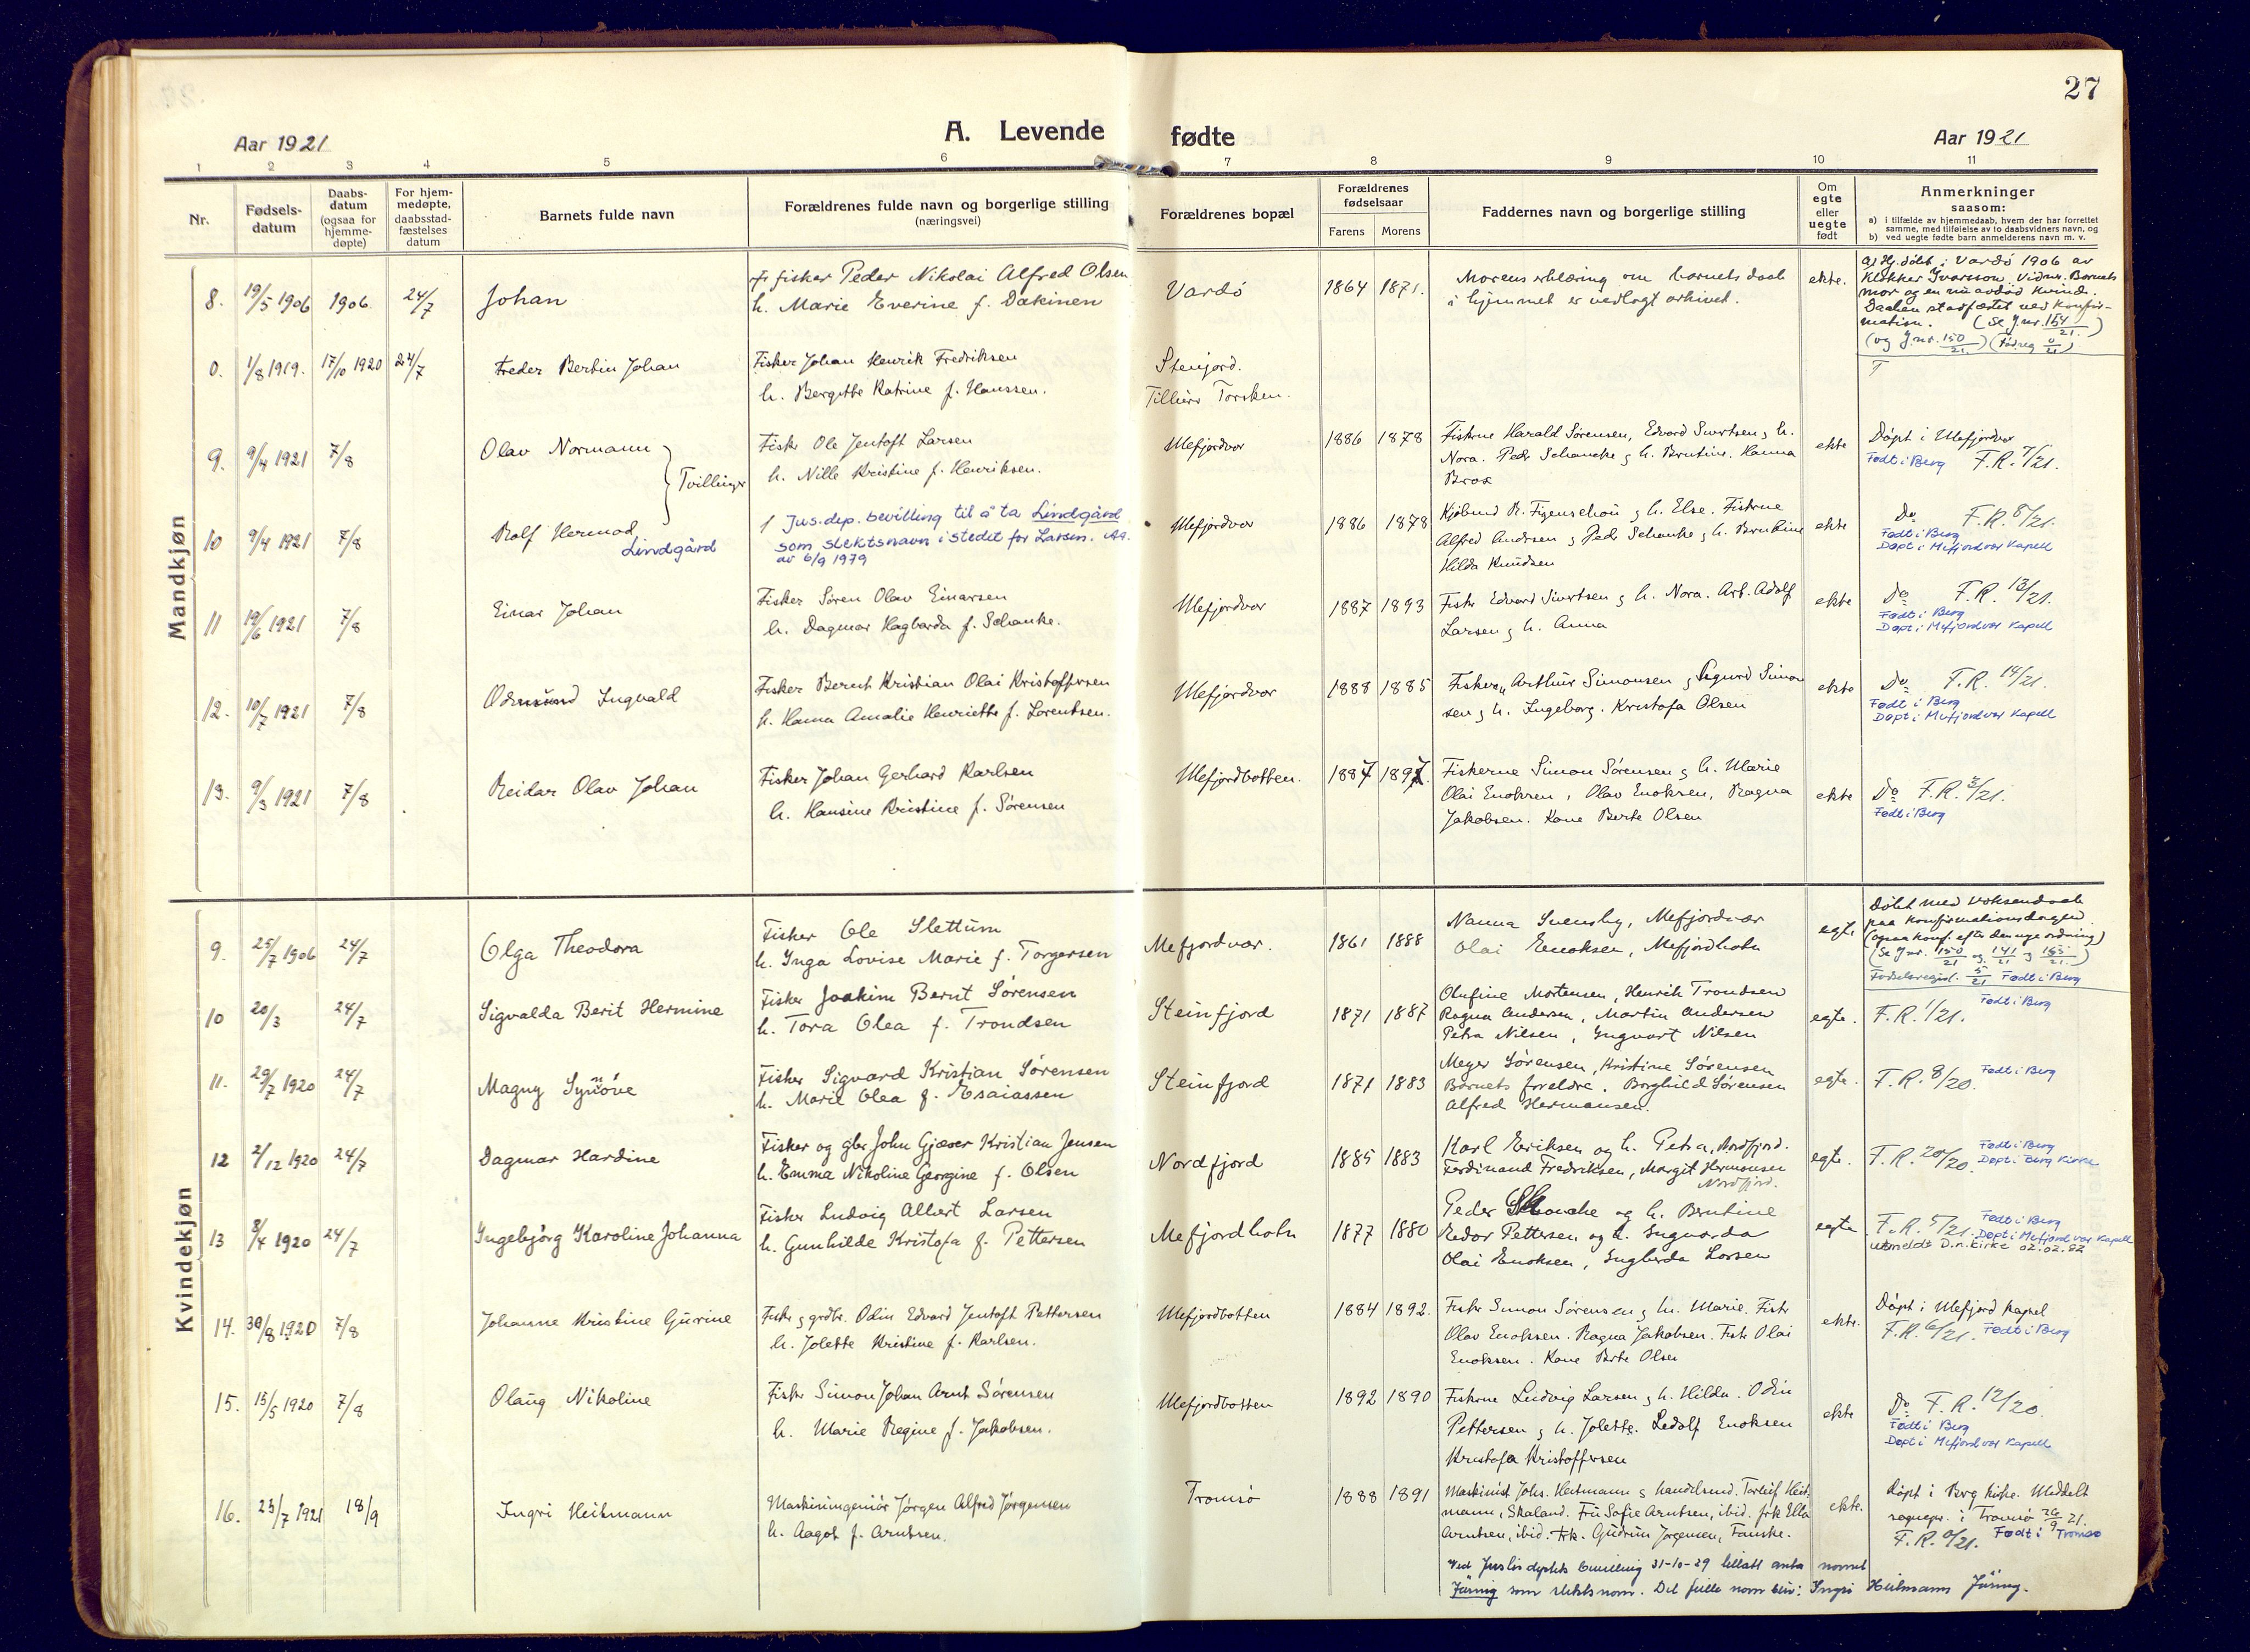 27
Aar 1921
A. Levende fødte
Aar 1921
1 2 3 4 5 6 7 8 9 10 11
Nr.
Fødsels-
datum
Daabs-
datum
(ogsaa for
hjemme-
døpte)
For hjem-
medøpte,
daabsstad-
fæstelses
datum
Barnets fulde navn
Forældrenes fulde navn og borgerlige stilling
(næringsvei)
Forældrenes bopæl
Forældrenes
fødselsaar
Farens Morens
Faddernes navn og borgerlige stilling
Om
egte
eller
uegte
født
Anmerkninger
saasom:
a) i tilfælde av hjemmedaab, hvem der har forrettet
samme, med tilføielse av to daabsvidners navn, og
b) ved uegte fødte barn anmelderens navn m. v.
Mandkjøn
8. 19/5 1906 1906. 24/7 Johan
fisker Peder Nikolai Alfred Olsen
h. Marie Everine f. Dakinen
Vardö 1864 1871.
Morens erklæring om barnets daab
i hjemmet er vedlagt arkivet.
ekte.
a) Hj. döbt i Vardö 1906 av
Klokker Ivarsson. Vidner. Barnets
mor og en nu avdöd kvinde.
Daaben stadfæstet ved konfir-
mation. (Se J.nr. 154/21)
(og J.nr. 150/21) (Föd.reg 0/21)
0. 1/8 1919. 17/10 1920 24/7 Freder Bertin Johan
Fisker Johan Henrik Fredriksen
h. Bergitte Katrine f. Hanssen.
Stenjord.
Tilhörer Torsken.
9. 9/4 1921 7/8 Olav Normann
Tvillinger
Fisker Ole Jentoft Larsen
h. Nille Kristine f. Henriksen.
Mefjordvær 1886 1878
Fiskerne Harald Sörensen, Edvard Sivertsen og h.
Nora. Peder Schancke og h. Berntine. Hanna
Brox
ekte
Döpt i Mefjordvær
Født i Berg F.R. 7/21.
10 9/4 1921 7/8 Rolf Hermod
Lindgård
Jus.dep. bevilling til å ta Lindgård
som slektsnavn i stedet for Larsen.
av 6/9 1979
Mefjordvær 1886 1878
Kjöbmd R. Figenschou og h. Else. Fiskerne
Alfred Andersen og Peder Schanke og h. Berntine
Hilda Knudsen
ekte
Do F.R. 8/21.
Født i Berg
Døpt i Mefjordvær Kapell
11 19/6 1921 7/8 Einar Johan
Fisker Sören Olav Einarsen
h. Dagmar Hagbarda f. Schanke.
Mefjordvær 1887 1893
Fisker Edvard Sivertsen og h. Nora. Arb. Adolf
Larsen og h. Anna
ekte
Do F.R. 13/21.
Født i Berg
Døpt i Mefjordvær Kapell
12. 10/7 1921 7/8 Odmund Ingvald
Fisker Bernt Kristian Olai Kristoffersen
h. Hanna Amalie Henriette f. Lorentsen.
Mefjordvær 1888 1885
Fiskerne Arthur Simonsen og Sigurd Simon
sen og h. Ingeborg. Kristofa Olsen
ekte
Do F.R. 14/21.
Født i Berg
Døpt i Mefjordvær Kapell
13. 9/3 1921 7/8 Reidar Olav Johan
Fisker Johan Gerhard Karlsen
h. Hansine Kristine f. Sörensen
Mefjordbotten. 1887 1897.
Fiskerne Simon Sörensen og h. Marie
Olai Enoksen, Olav Enoksen, Ragna
Jakobsen. Kone Berte Olsen
ekte
Do F.R. 3/21.
Født i Berg
Kvindekjøn
9. 25/7 1906 24/7 Olga Theodora
Fisker Ole Slettum
h. Inga Lovise Marie f. Torgersen
Mefjordvær. 1861 1888
Nanna Svensby, Mefjordvær
Olai Enoksen, Mefjordbotn
egte
Döbt med voksendaab
paa konfirmationsdagen.
(ogsaa konf. efter den nye ordning)
(Se J.nr. 150/21 og 141/21 og 155/21.)
Fødselsregist. 5/21 Født i Berg
10 20/3 24/7 Sigvalda Berit Hermine
Fisker Joakim Bernt Sörensen
h. Tora Olea f. Trondsen
Steinfjord 1871 1887
Olufine Mortensen, Henrik Trondsen
Ragna Andersen, Martin Andersen
Petra Nilsen, Ingvart Nilsen
egte.
F.R. 1/21. Født i Berg
11. 29/7 1920 24/7 Magny Synöve
Fisker Sigvard Kristian Sörensen
h. Marie Olea f. Esaiassen
Steinfjord 1871 1883
Meyer Sörensen, Kristine Sörensen
Barnets foreldre. Borghild Sörensen
Alfred Hermansen.
egte.
F.R. 8/20. Født i Berg
12 2/12 1920 24/7 Dagmar Hardine
Fisker og gbr John Gjæver Kristian Jensen
h. Emma Nikoline Georgine f. Olsen
Nordfjord 1885 1883
Karl Eriksen og h. Petra, Nordfjord.
Ferdinand Fredriksen, Margit Hermansen
Nordfjord.
egte.
F.R. 20/20. Født i Berg
Døpt i Berg Kirke
13 3/4 1920 24/7 Ingebjörg Karoline Johanna
Fisker Ludvig Albert Larsen
h. Gunhilde Kristofa f. Pettersen
Mefjordbotn 1877 1880
Peder Schancke og h. Berntine
Pedor Pettersen og h. Ingvarda
Olai Enoksen, Ingberda Larsen
egte
F.R. 5/21. Født i Berg
Døpt i Mefjordvær Kapell
utmeldt D.n.kirke 02.02.82
14. 30/8 1920 7/8 Johanne Kristine Gurine
Fisker og grdbr. Odin Edvard Jentoft Pettersen
h. Jolette Kristine f. Karlsen.
Mefjordbotten 1884 1892.
Fisker Simon Sörensen og h. Marie. Fisker
Olav Enoksen. Ragna Jakobsen. Fisker Olai
Enoksen. Kone Berte Olsen
ekte.
Döpt i Mefjord kapel
F.R. 6/21. Født i Berg
15. 15/5 1920 7/8 Olaug Nikoline
Fisker Simon Johan Arnt Sörensen
h. Marie Regine f. Jakobsen.
Mefjordbotten 1892 1890
Fiskerne Ludvig Larsen og h. Hilda. Odin
Pettersen og h. Jolette. Ledolf Enoksen
Kristofa Kristoffersen
ekte
Do F.R. 12/20.
Født i Berg
Døpt i Mefjordvær Kapell
16. 23/7 1921 18/9 Ingri Heitmann
Maskiningeniör Jørgen Alfred Jørgensen
h. Aagot f. Arntsen.
Tromsö 1888 1891
Maskinist Johs. Heitmann og handelsmd. Torleif Heit-
mann, Skaland. Fru Sofie Arntsen, ibid. frk Ella
Arntsen, ibid. Frk. Gudrun Jørgensen, Fauske.
ekte.
Döpt i Berg kirke. Meddelt
sognepr. i Tromsö 26/9 21.
F.R. 0/21. Født i Tromsø
Ved Justisdeptets bevilling 31-10-29 tillatt anta navnet
Jüring som slektsnavn. Det fulle navn blir: Ingri Heitmann Jüring.